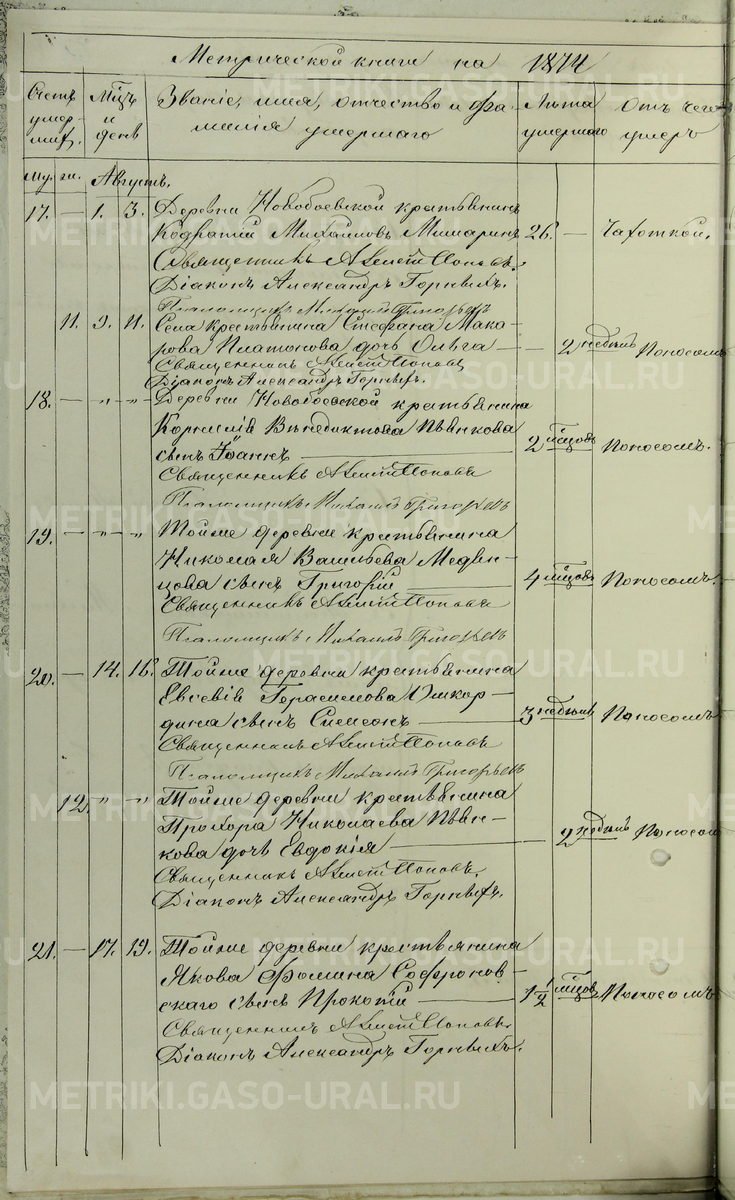 Метрической книги на 1874
Счетъ умер- ших.
Мцъ и день
Званіе, имя, отчество и фа- милія умершаго
Лѣта умершаго
Отъ чего умеръ
му. ж. Августъ.
17. — 1. 3. Деревни Новобоевской крестьянинъ
Кодратій Михайловъ 26. — Чахоткой.
Священникъ Алексѣй Поповъ.
Діаконъ Александръ Горныхъ.
Псаломщикъ Михаилъ Григорьевъ
11. 9. 11. Села крестьянина Стефана Мака-
рова Платонова дочь Ольга — 2 недѣль Поносомъ
Священникъ Алексѣй Поповъ
Діаконъ Александръ Горныхъ.
18. — „ — „ — Деревни Новобоевской крестьянина
Корнилія Венедиктова Пьянкова
сынъ Іоаннъ — 2 мцовъ Поносомъ.
Священникъ Алексѣй Поповъ
Псаломщикъ Михаилъ Григорьевъ
19. — „ — „ Тойже деревни крестьянина
Николая Васильева Медвѣ-
цова сынъ Григорій — 4 мцовъ Поносомъ.
Священникъ Алексѣй Поповъ
Псаломщикъ Михаилъ Григорьевъ
20. — 14. 16. Тойже деревни крестьянина
Евсевія Герасимова Ошкор-
дина сынъ Симеонъ — 3 недѣль Поносомъ
Священникъ Алексѣй Поповъ
Псаломщикъ Михаилъ Григорьевъ
12. „ „ Тойже деревни крестьянина
Прохора Николаева Пьян-
кова дочь Евдокія — 2 недѣль Поносом
Священникъ Алексѣй Поповъ.
Діаконъ Александръ Горныхъ.
21. — 17. 19. Тойже деревни крестьянина
Якова Фомина Софронов-
скаго сынъ Прокопій — 1 1/2 мцовъ Поносомъ
Священникъ Алексѣй Поповъ.
Діаконъ Александръ Горныхъ.
METRIKI.GASO-URAL.RU